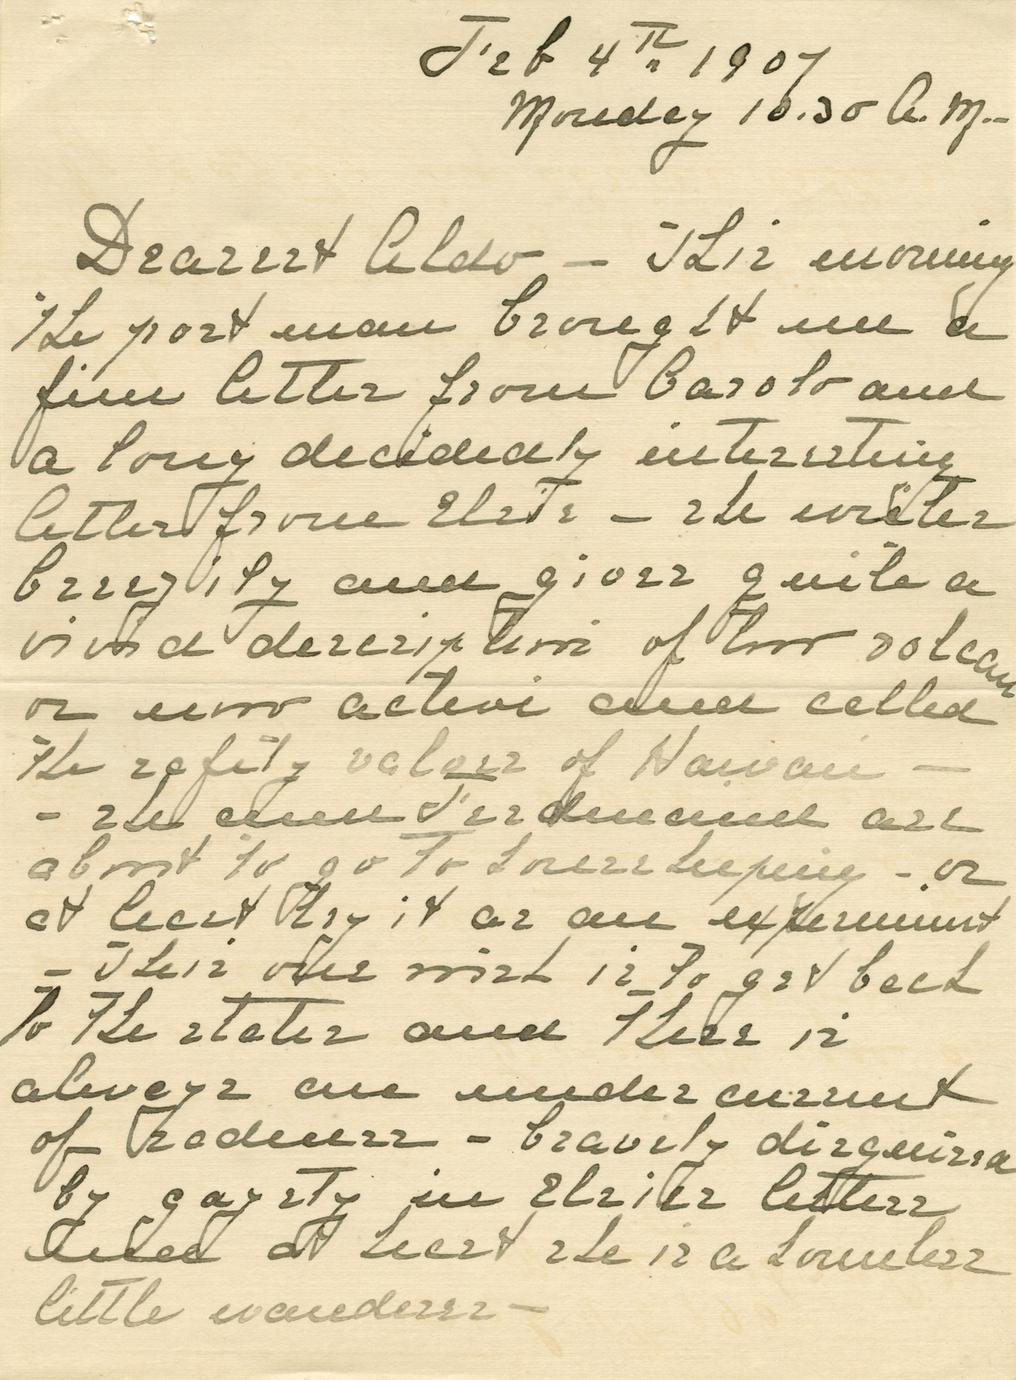 Feb 4th 1907
Monday 10.30 A.M.-
Dearest Aldo - This morning
the post man brought me a
fine letter from Carolo and
a long decidedly interesting
letter from Elsie - she writes
breezily and gives quite a
vivid description of two volcan
oes now active and called
the safety valves of Hawaii -
- she and Ferdinand are
about to go to housekeeping - or
at least try it as an experiment
- Their one wish is to get back
to the states and there is
always an under current
of sadness - bravely disguised
by gayety in Elsies letters
and at heart she is a homeless
little wanderer -